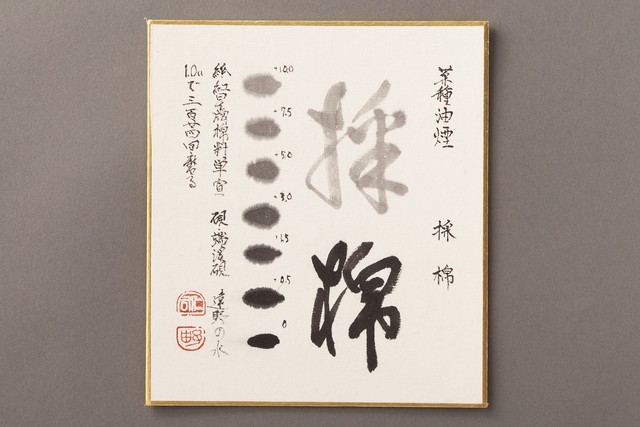 菜種油煙 採 棉
採棉
-10.0
-7.5
-5.0
-3.0
-1.5
-0.5
0
料単宣 硯 端渓硯 遠野の水
1.0ccで三百廿四回磨る